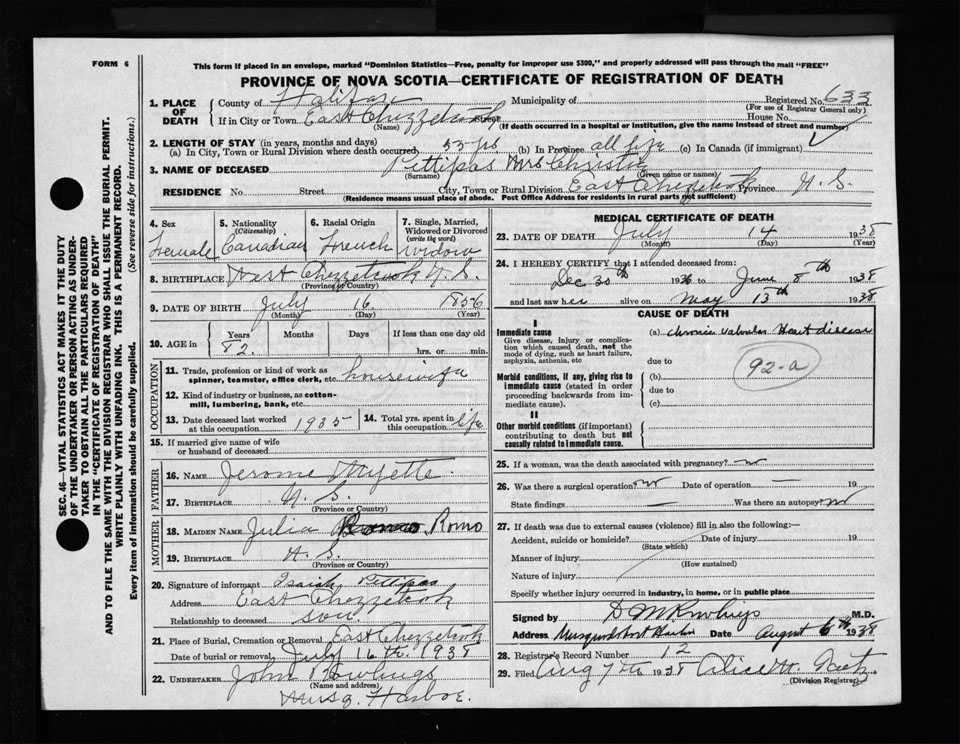 FORM 6
This form if placed in an envelope, marked "Dominion Statistics—Free, penalty for improper use $300," and properly addressed will pass through the mail "FREE"
PROVINCE OF NOVA SCOTIA—CERTIFICATE OF REGISTRATION OF DEATH
1. PLACE OF DEATH
County of Halifax Municipality of Registered No. 633
(For use of Registrar General only)
If in City or Town East Chezzetcook Street House No.
(Name) (If death occurred in a hospital or institution, give the name instead of street and number)
2. LENGTH OF STAY (in years, months and days)
(a) In City, Town or Rural Division where death occurred 55 yrs (b) In Province all life (c) In Canada (if immigrant)
3. NAME OF DECEASED Pettipas Mrs Christie
(Surname) (Given name or names)
RESIDENCE No. Street City, Town or Rural Division East Chezzetcook Province N. S.
(Residence means usual place of abode. Post Office Address for residents in rural parts not sufficient)
4. Sex Female
5. Nationality (Citizenship) Canadian
6. Racial Origin French
7. Single, Married, Widowed or Divorced (write the word) Widow
8. BIRTHPLACE West Chezzetcook N. S.
(Province or Country)
9. DATE OF BIRTH July 16 1856
(Month) (Day) (Year)
10. AGE in Years 82 Months Days If less than one day old hrs. or min.
OCCUPATION
11. Trade, profession or kind of work as spinner, teamster, office clerk, etc. housewife
12. Kind of industry or business, as cotton-mill, lumbering, bank, etc.
13. Date deceased last worked at this occupation 1935
14. Total yrs. spent in this occupation life
15. If married give name of wife or husband of deceased
FATHER
16. NAME Jerome
17. BIRTHPLACE N. S.
(Province or Country)
MOTHER
18. MAIDEN NAME Julia Romo
19. BIRTHPLACE N. S.
(Province or Country)
20. Signature of informant Isaiah Pettipas
Address East Chezzetcook
Relationship to deceased son
21. Place of Burial, Cremation or Removal East Chezzetcook
Date of burial or removal July 16th 1938
22. UNDERTAKER John Rowlings
(Name and address)
Musq. Harbor.
MEDICAL CERTIFICATE OF DEATH
23. DATE OF DEATH July 14 1938
(Month) (Day) (Year)
24. I HEREBY CERTIFY that I attended deceased from:
Dec 30th 1936 to June 8th 1938
and last saw her alive on May 13th 1938
CAUSE OF DEATH
I
Immediate cause (a) chronic valvular Heart disease
Give disease, injury or complication which caused death, not the mode of dying, such as heart failure, asphyxia, asthenia, etc
due to
92-a
Morbid conditions, if any, giving rise to immediate cause (stated in order proceeding backwards from immediate cause).
(b)
due to
(c)
II
Other morbid conditions (if important) contributing to death but not causally related to immediate cause.
25. If a woman, was the death associated with pregnancy? no
26. Was there a surgical operation? no Date of operation — 19
State findings — Was there an autopsy? no
27. If death was due to external causes (violence) fill in also the following:—
Accident, suicide or homicide? Date of injury 19
(State which)
Manner of injury
(How sustained)
Nature of injury
Specify whether injury occurred in industry, in home, or in public place
Signed by M.D.
Address Musquodoboit Harbor Date August 6th 1938
28. Registrar's Record Number 12
29. Filed Aug 7th 1938 Alice M.
(Division Registrar)
SEC. 46—VITAL STATISTICS ACT MAKES IT THE DUTY
OF THE UNDERTAKER OR PERSON ACTING AS UNDER-
TAKER TO OBTAIN ALL THE PARTICULARS REQUIRED
IN THE "CERTIFICATE OF REGISTRATION OF DEATH"
AND TO FILE THE SAME WITH THE DIVISION REGISTRAR WHO SHALL ISSUE THE BURIAL PERMIT.
WRITE PLAINLY WITH UNFADING INK. THIS IS A PERMANENT RECORD.
Every item of information should be carefully supplied. (See reverse side for instructions.)